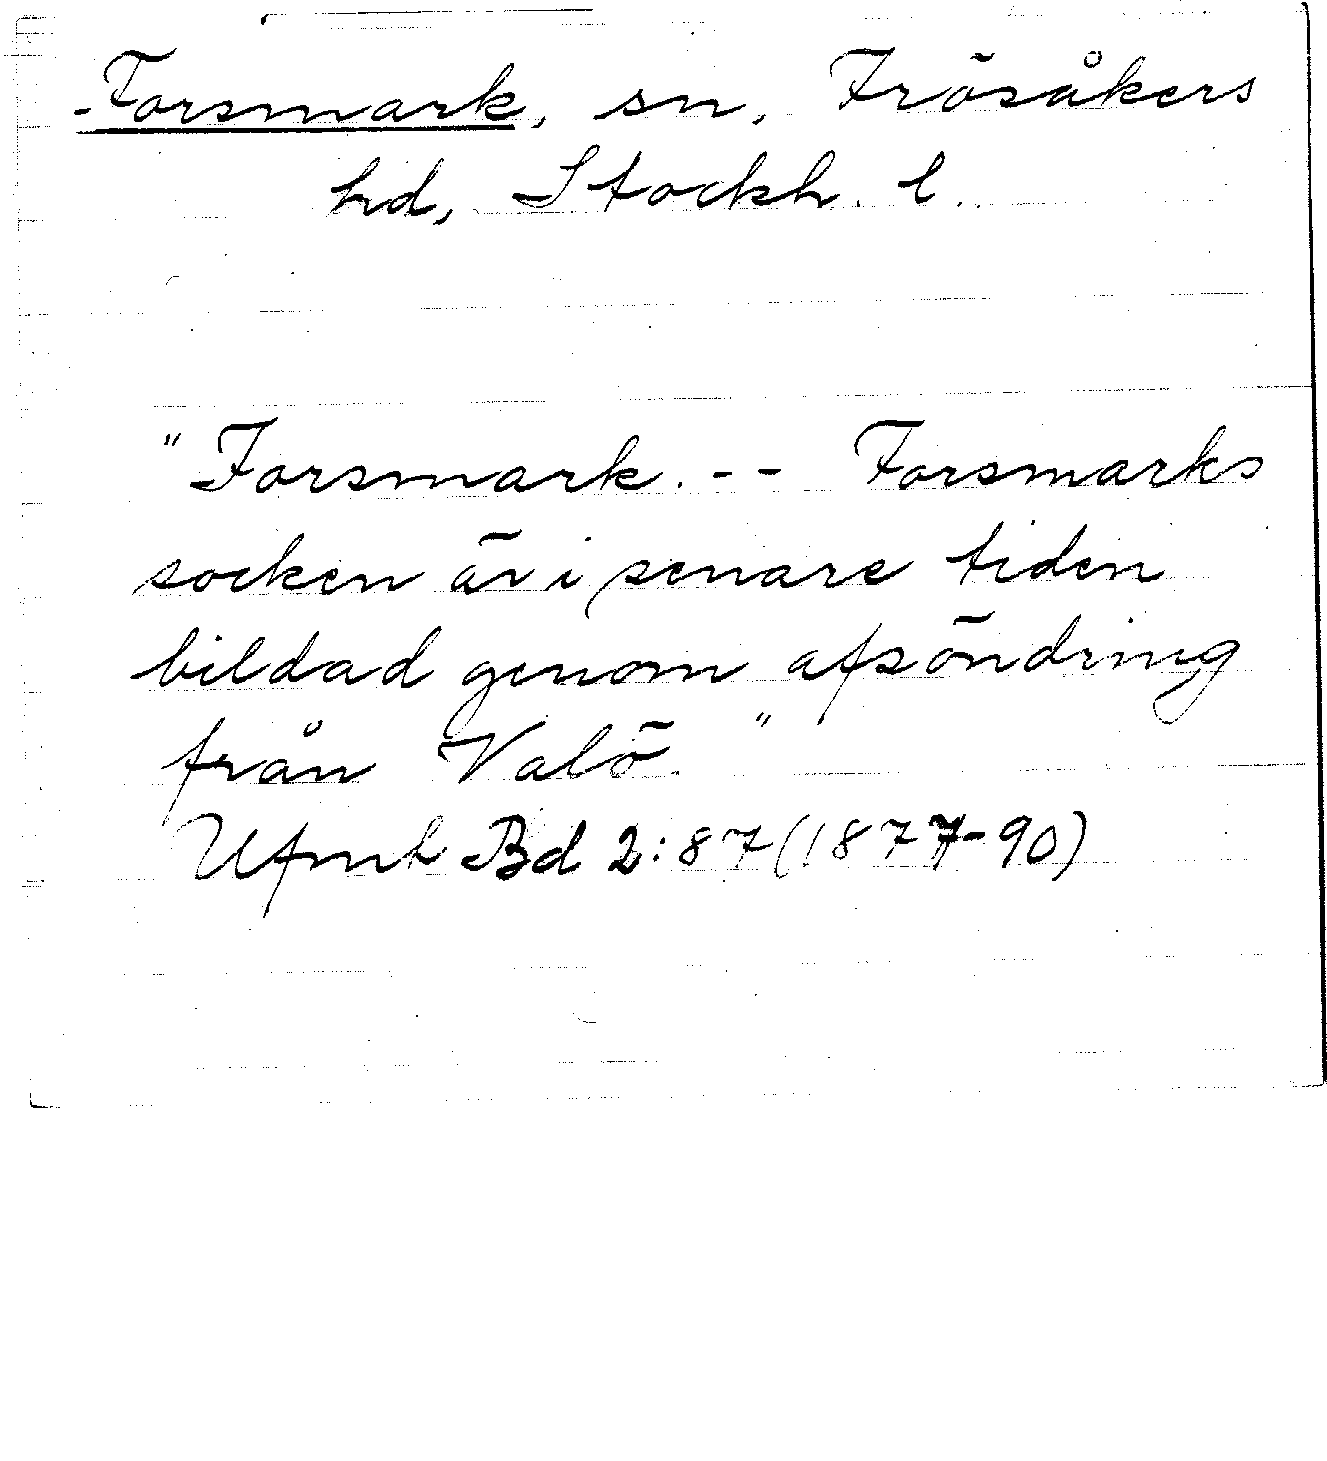 Forsmark, sn, Frösåkers
hd, Stockh. l.
"Forsmark. -- Forsmarks
socken är i senare tiden
bildad genom afsöndring
från Valö."
Ufmh Bd 2:87 (1877-90)